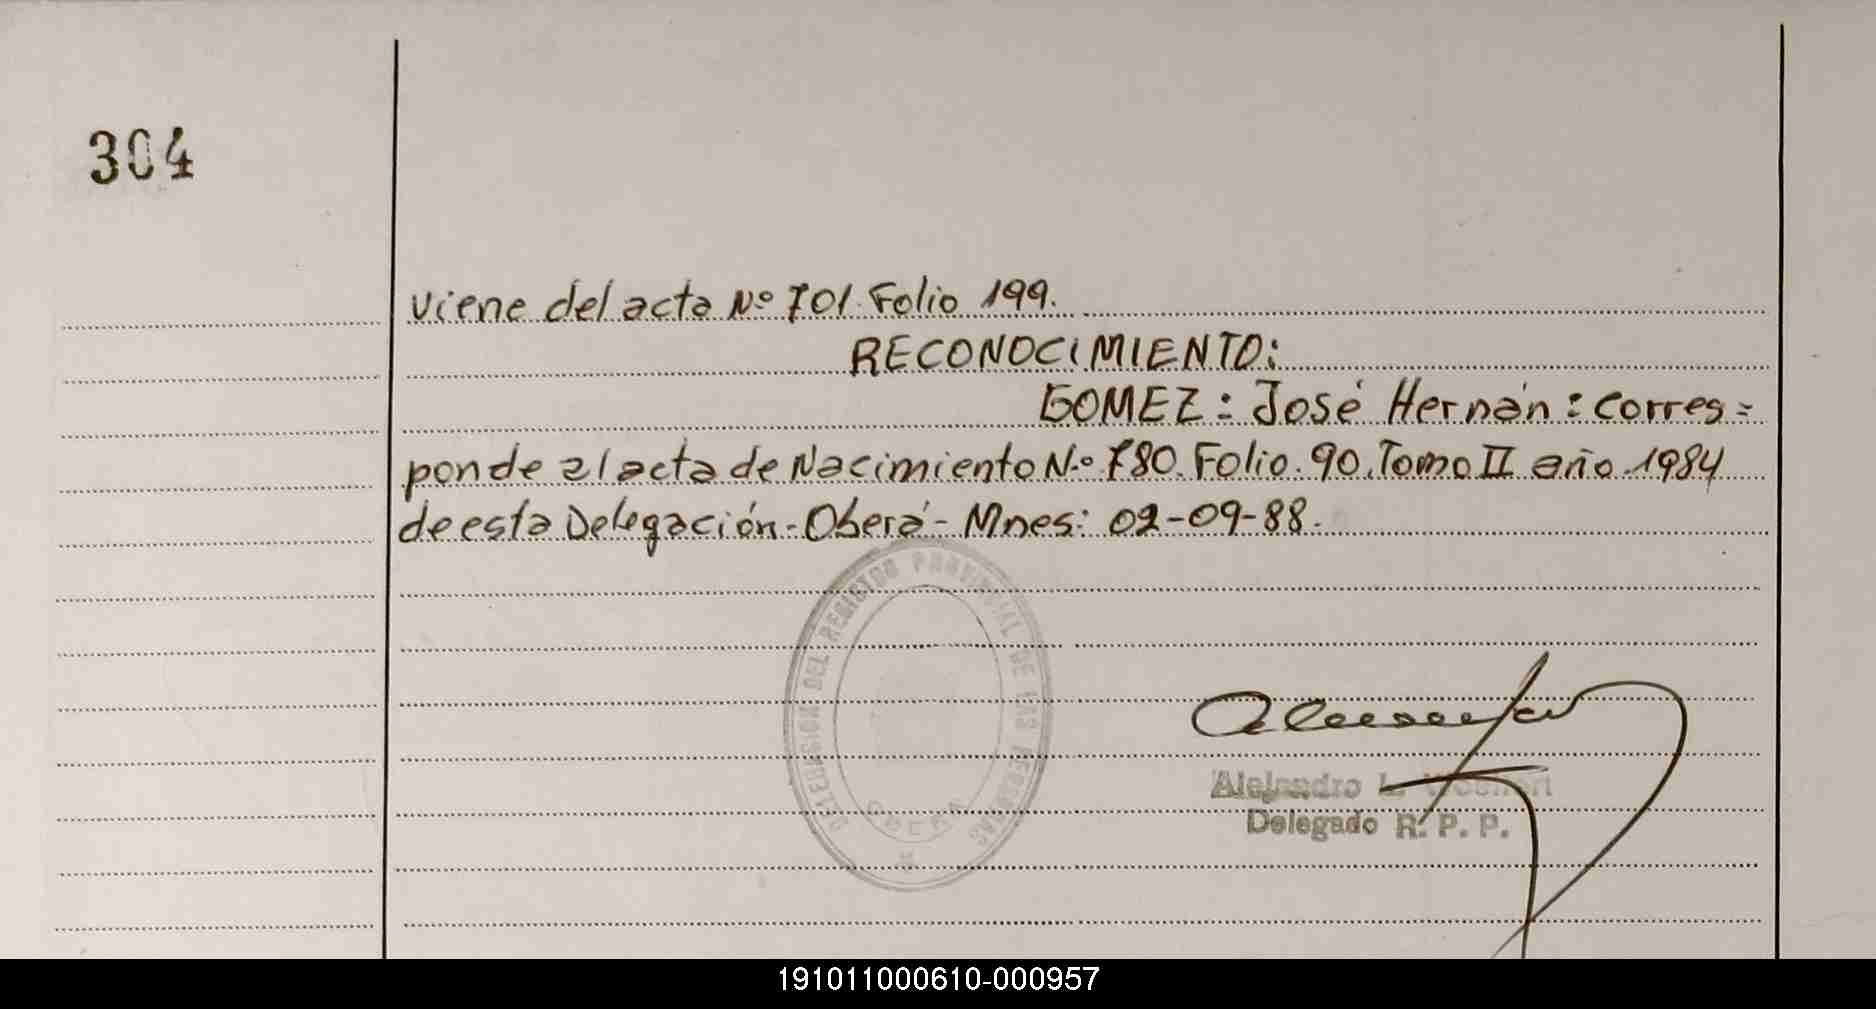 304
Viene del acta Nº 701. Folio 199.
RECONOCIMIENTO:
GOMEZ: José Hernán: Corres=
ponde al acta de Nacimiento N.º 780. Folio. 90. Tomo II año. 1984
de esta Delegación.- Oberá- Mnes: 02-09-88.
DELEGACION DEL REGISTRO PROVINCIAL DE LAS PERSONAS
OBERA
Alejandro L.
Delegado R. P. P.
191011000610-000957